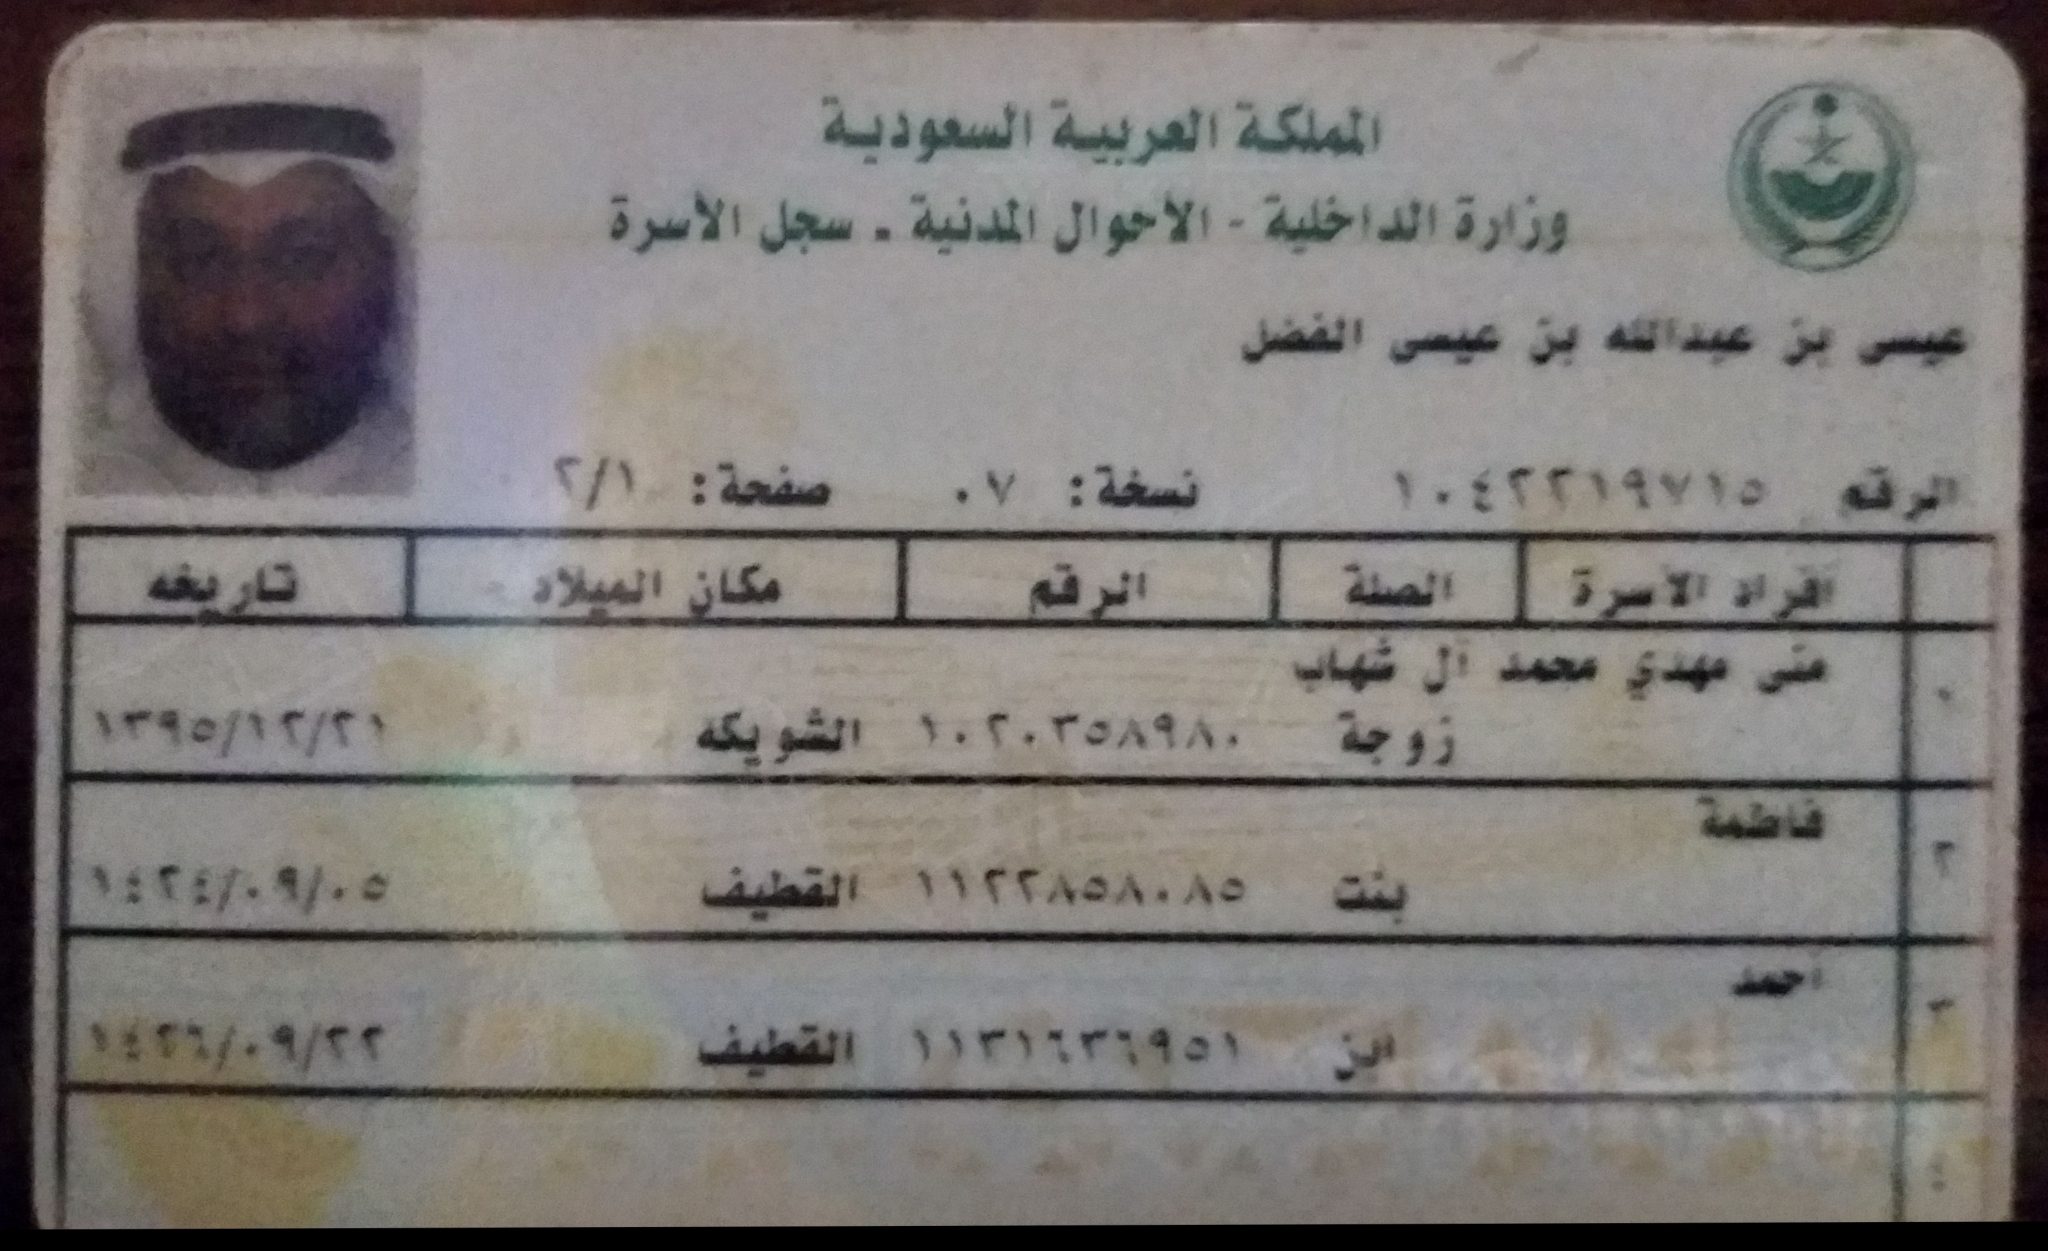 المملكة العربية السعودية
وزارة الداخلية - الأحوال المدنية - سجل الأسرة
عيسى بن عبدالله بن عيسى الفضل
الرقم ١٠٤٢٢١٩٧١٥ نسخة: ٠٧ صفحة: ٢/١
أفراد الأسرة الصلة الرقم مكان الميلاد تاريخه
١ منى مهدي محمد آل شهاب
زوجة ١٠٢٠٣٥٨٩٨٠ الشويكه ١٣٩٥/١٢/٢١
٢ فاطمة
بنت ١١٢٢٨٥٨٠٨٥ القطيف ١٤٢٤/٠٩/٠٥
٣ احمد
ابن ١١٣١٦٣٦٩٥١ القطيف ١٤٢٦/٠٩/٢٢
٤